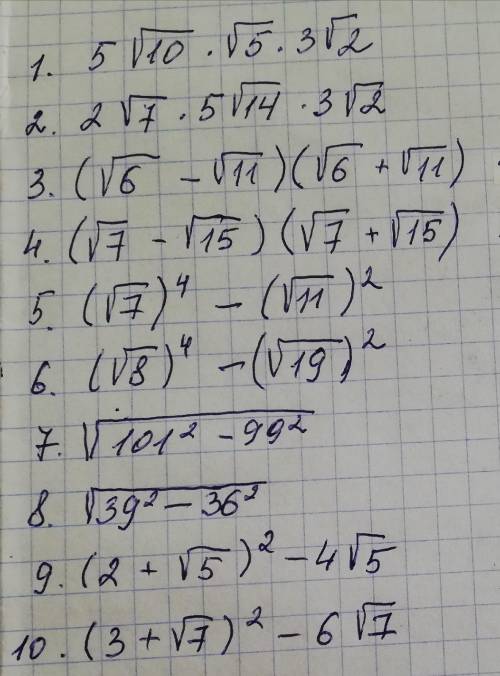 1. 5√10 · √5 · 3√2
2. 2√7 · 5√14 · 3√2
3. (√6 - √11)(√6 + √11)
4. (√7 - √15)(√7 + √15)
5. (√7)⁴ - (√11)²
6. (√8)⁴ - (√19)²
7. √(101² - 99²)
8. √(39² - 36²)
9. (2 + √5)² - 4√5
10. (3 + √7)² - 6√7